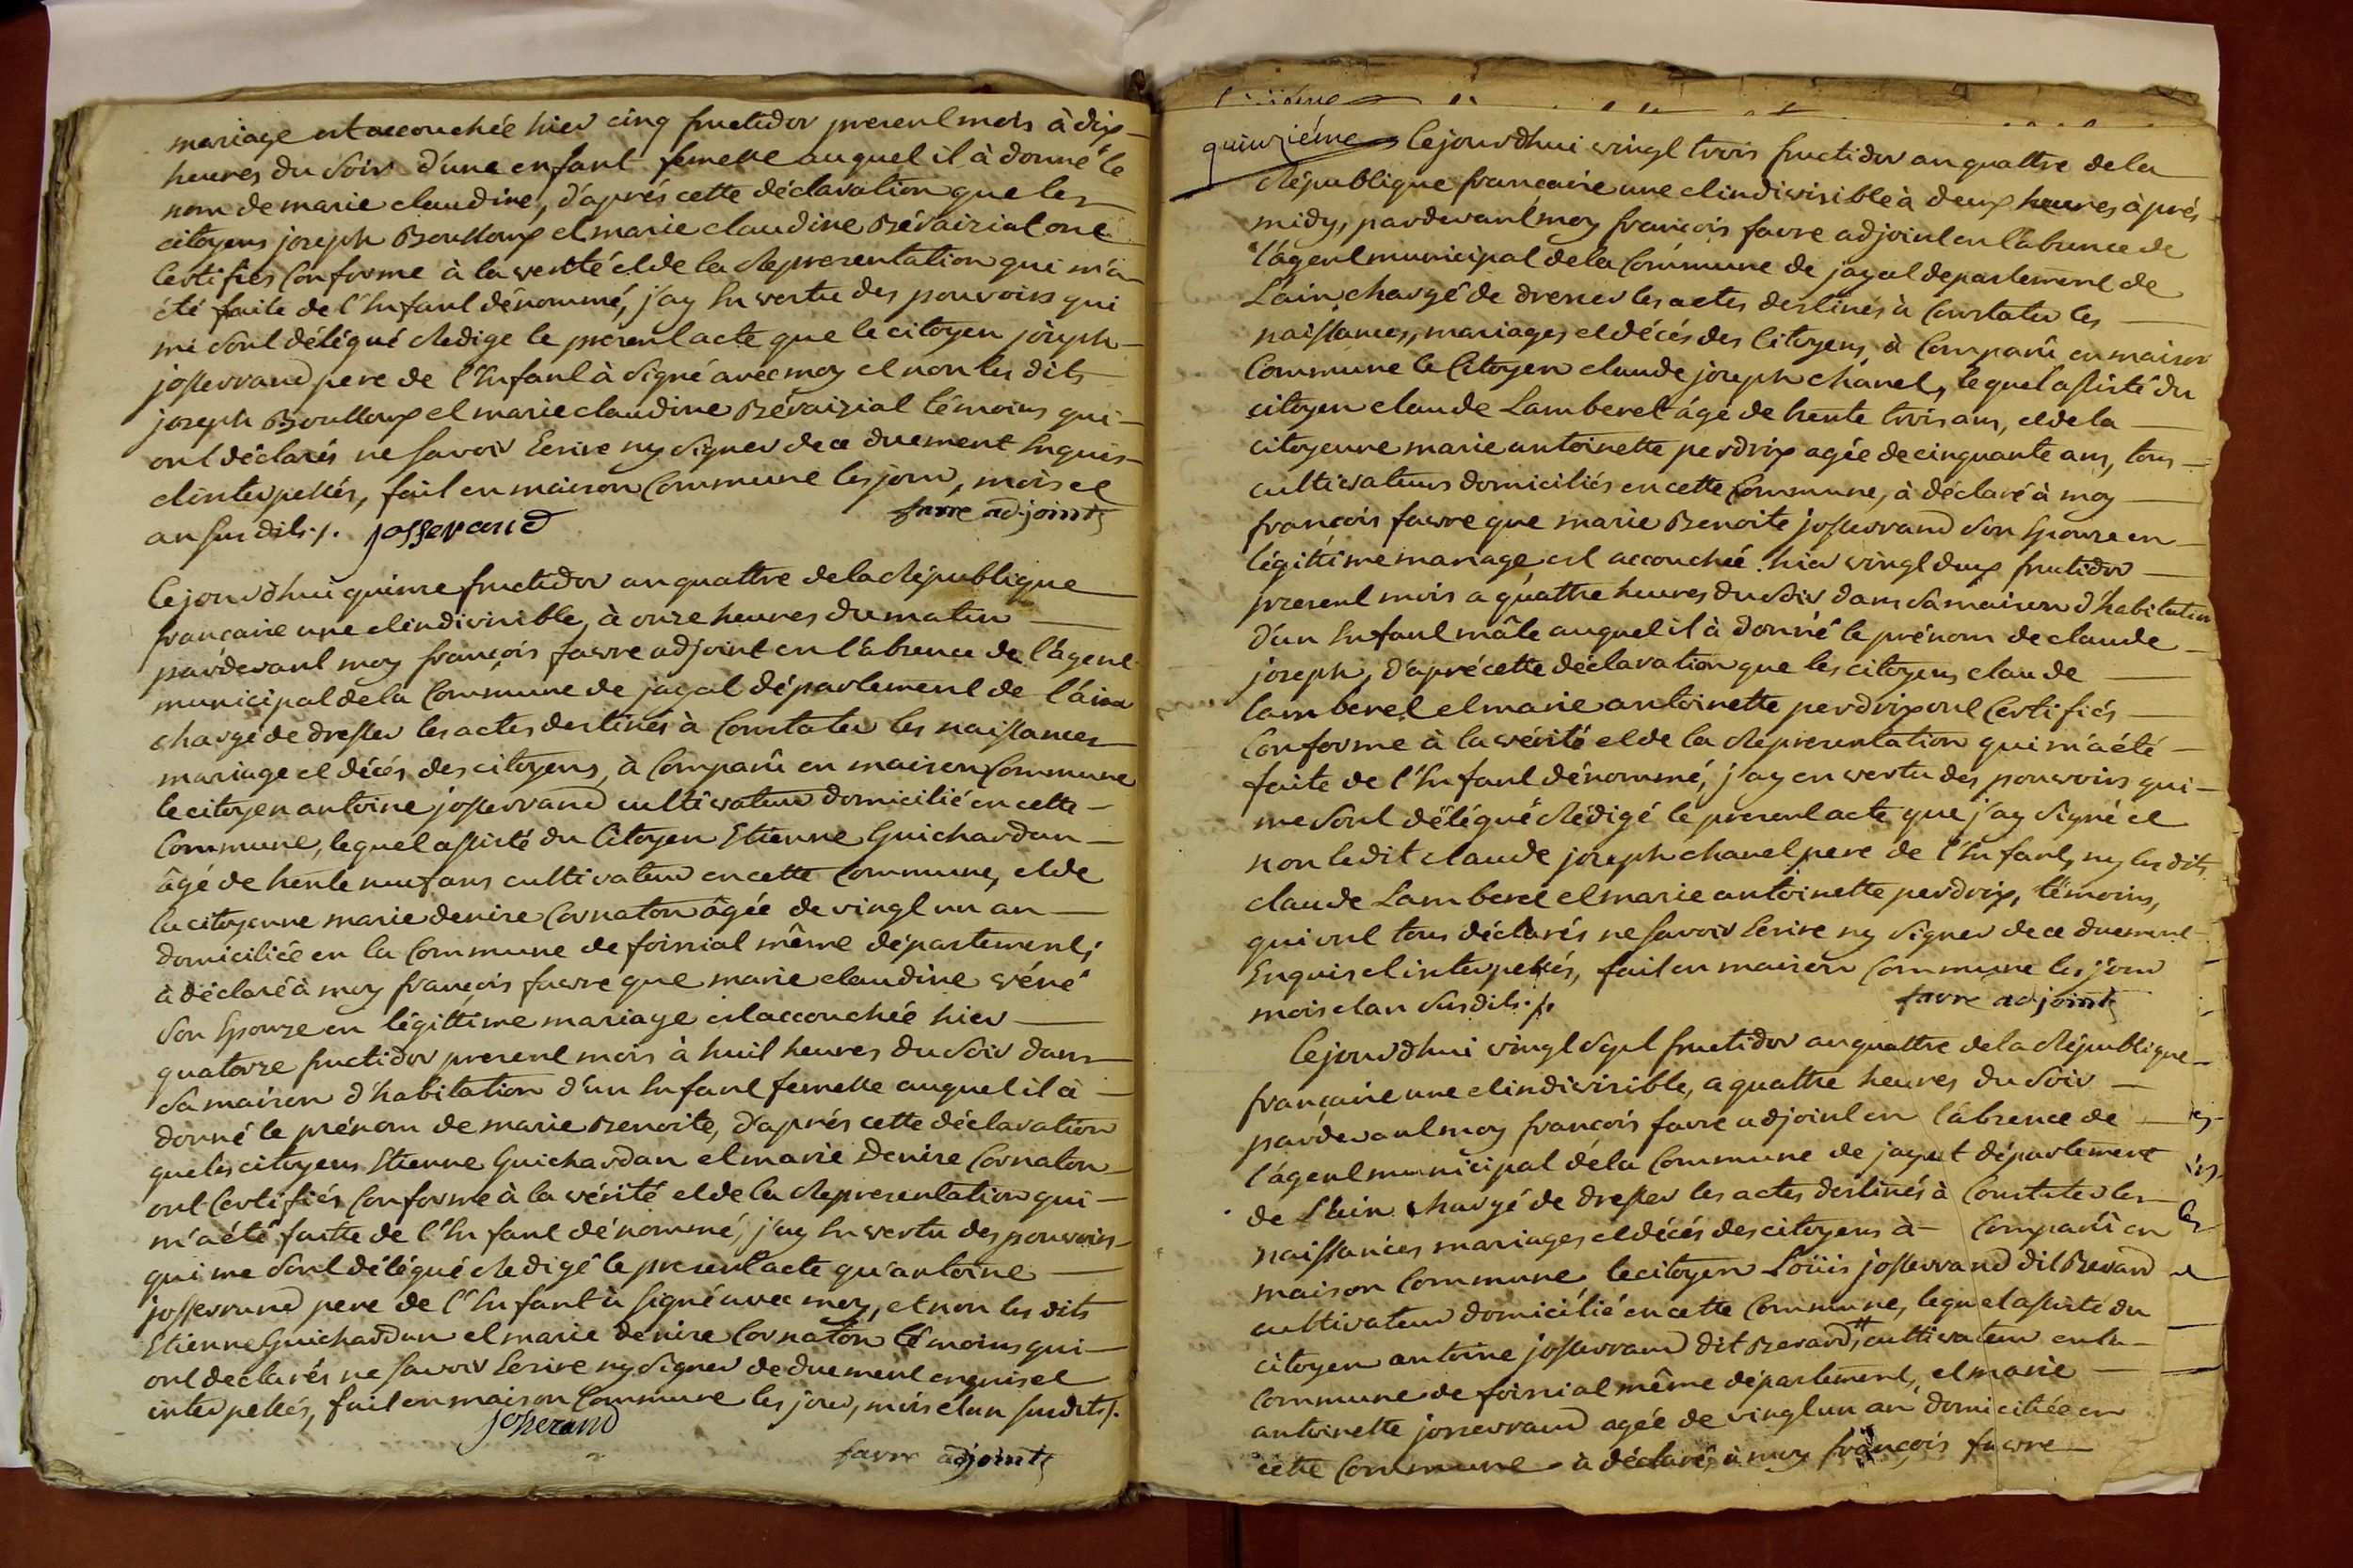 mariage est accouchée hier cinq fructidor present mois à dix
heures du Soir d'une enfant femelle auquel il à donné le
nom de marie claudine, d'aprés cette déclaration que les
citoyens joseph Boulloux et marie claudine Bévaizial ont
Certifiés Conforme à la verité et de la Representation qui m'a
été faite de l'Enfant dénommé, j'ay En vertu des pouvoirs qui
me Sont délégué Redige le present acte que le citoyen joseph
josserrand pere de l'Enfant à Signé avec moy et non les dits
joseph Boulloux et marie claudine Bévaizial témoins qui
ont déclarés ne savoir Ecrire ny Signer de ce duement Enquis
et interpellés, fait en maison Commune les jour, mois et
an susdits /. josserand favre adjoint
Cejourd'hui quinze fructidor an quattre de la République
francaise une et indivisible, à onze heures du matin
pardevant moy françois favre adjoint en l'absence de l'agent
municipal de la Commune de jayat département de l'ain
chargé de dresser les actes destinés à Constater les naissances
mariage et décés des citoyens, à Comparû en maison Commune
le citoyen antoine josserrand cultivateur domicilié en cette
Commune, lequel assisté du Citoyen Etienne Guichardan
âgé de trente neuf ans cultivateur en cette Commune, et de
la citoyenne marie denise Cornaton âgée de vingt un an
domiciliée en la Commune de foissiat même département,
à déclaré à moy françois favre que marie claudine véné
Son Epouze en légittime mariage est accouchée hier
quatorze fructidor present mois à huit heures du Soir dans
Sa maison d'habitation d'un Enfant femelle auquel il à
donné le prénom de marie Benoite, d'aprés cette déclaration
que les citoyens Etienne Guichardan et marie Denise Cornaton
ont Certifiés Conforme à la vérité et de la Representation qui
m'a été faitte de l'Enfant dénommé, j'ay En vertu des pouvoirs
qui me Sont délégué Redigé le present acte qu'antoine
josserrand pere de l'Enfant à Signé avec moy, et non les dits
Etienne Guichardan et marie denise Cornaton témoins qui
ont declarés ne savoir Ecrire ny Signer de duement enquis et
interpellés, fait en maison Commune les jour, mois et an susdits /.
josserand
favre adjoint
quinziéme Cejourd'hui vingt trois fructidor an quattre de la
République francaise une et indivisible à deux heures aprés
midy, pardevant moy françois favre adjoint en l'absence de
l'agent municipal de la Commune de jayat departement de
L'ain chargé de dresser les actes destinés à Constater les
naissances, mariages et décés des Citoyens à Comparû en maison
Commune le Citoyen claude joseph chanel, lequel assisté du
citoyen claude Lamberet âgé de trente trois ans, et de la
citoyenne marie antoinette perdrix agée de cinquante ans, tous
cultivateurs domiciliés en cette Commune, à déclaré à moy
françois favre que marie Benoite josserrand Son Epouze en
légittime mariage est accouchée hier vingt deux fructidor
present mois a quattre heures du Soir dans Sa maison d'habitation
d'un Enfant mâle auquel il à donné le prénom de claude
joseph, d'apré cette déclaration que les citoyens claude
lamberet et marie antoinette perdrix ont Certifiés
Conforme à la vérité et de la Representation qui m'a été
faite de l'Enfant dénommé, j'ay en vertu des pouvoirs qui
me Sont délégué Rédigé le present acte que j'ay Signé et
non ledit claude joseph chanel pere de l'Enfant, ny les dits
claude Lamberet et marie antoinette perdrix, témoins,
qui ont tous déclarés ne savoir Ecrire ny Signer de ce duement
Enquis et interpellés, fait en maison Commune les jour
mois et an Susdits ./. favre adjoint
Cejourd'hui vingt Sept fructidor an quattre de la République
française une et indivisible, a quattre heures du Soir
pardevant moy françois favre adjoint en l'absence de
l'agent municipal de la Commune de jayat département
de L'ain chargé de dresser les actes destinés à Constater les
naissances mariages et décés des citoyens à Comparû en
maison Commune le citoyen Loüis josserrand dit Besand
cultivateur domicilié en cette Commune, lequel assisté du
citoyen antoine josserrand dit Besand, cultivateur en la
Commune de foissiat même département, et marie
antoinette josserrand agée de vingt un an domiciliée en
cette Commune à déclaré à moy françois favre